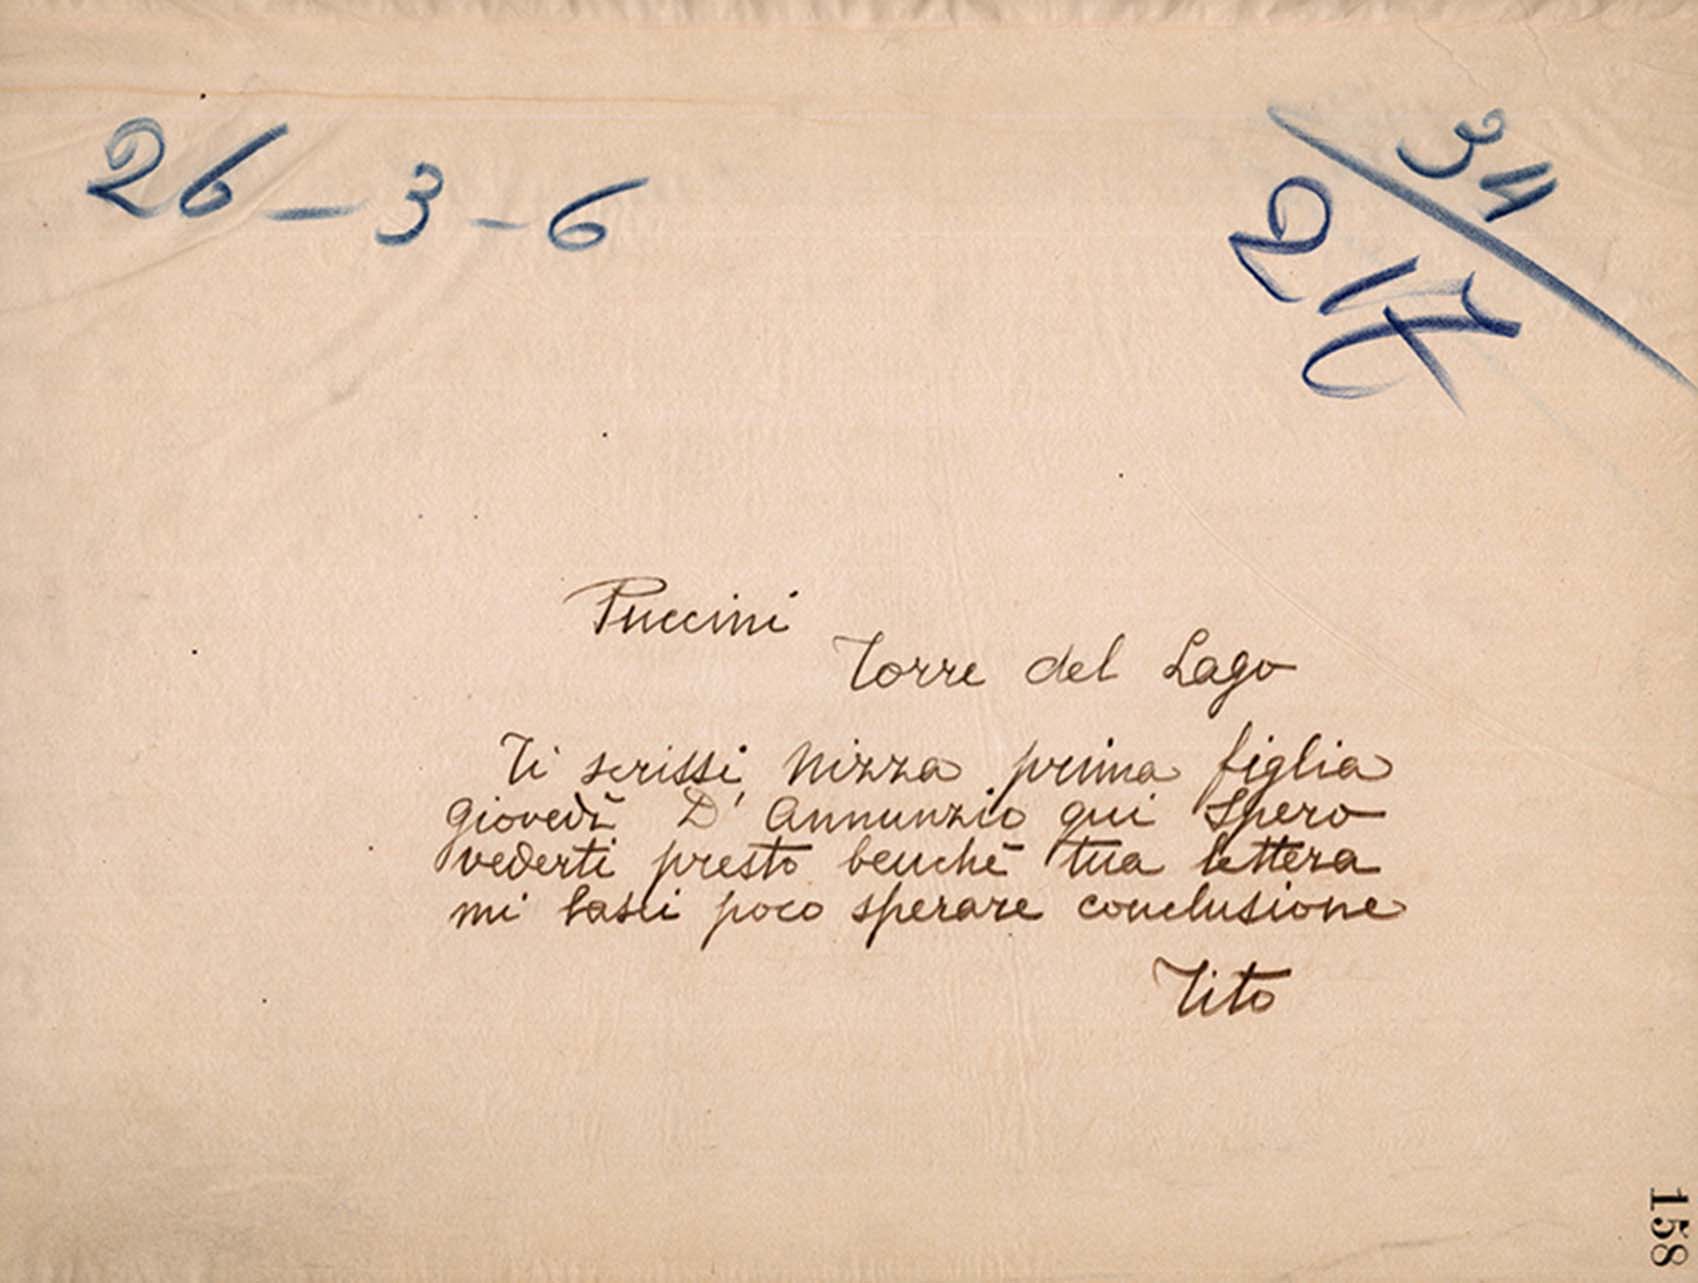 26-3-6
34
217
Puccini
Torre del Lago
Ti scrissi Nizza prima figlia
giovedì D'Annunzio qui spero
vederti presto benchè tua lettera
mi lasci poco sperare conclusione
Tito
158